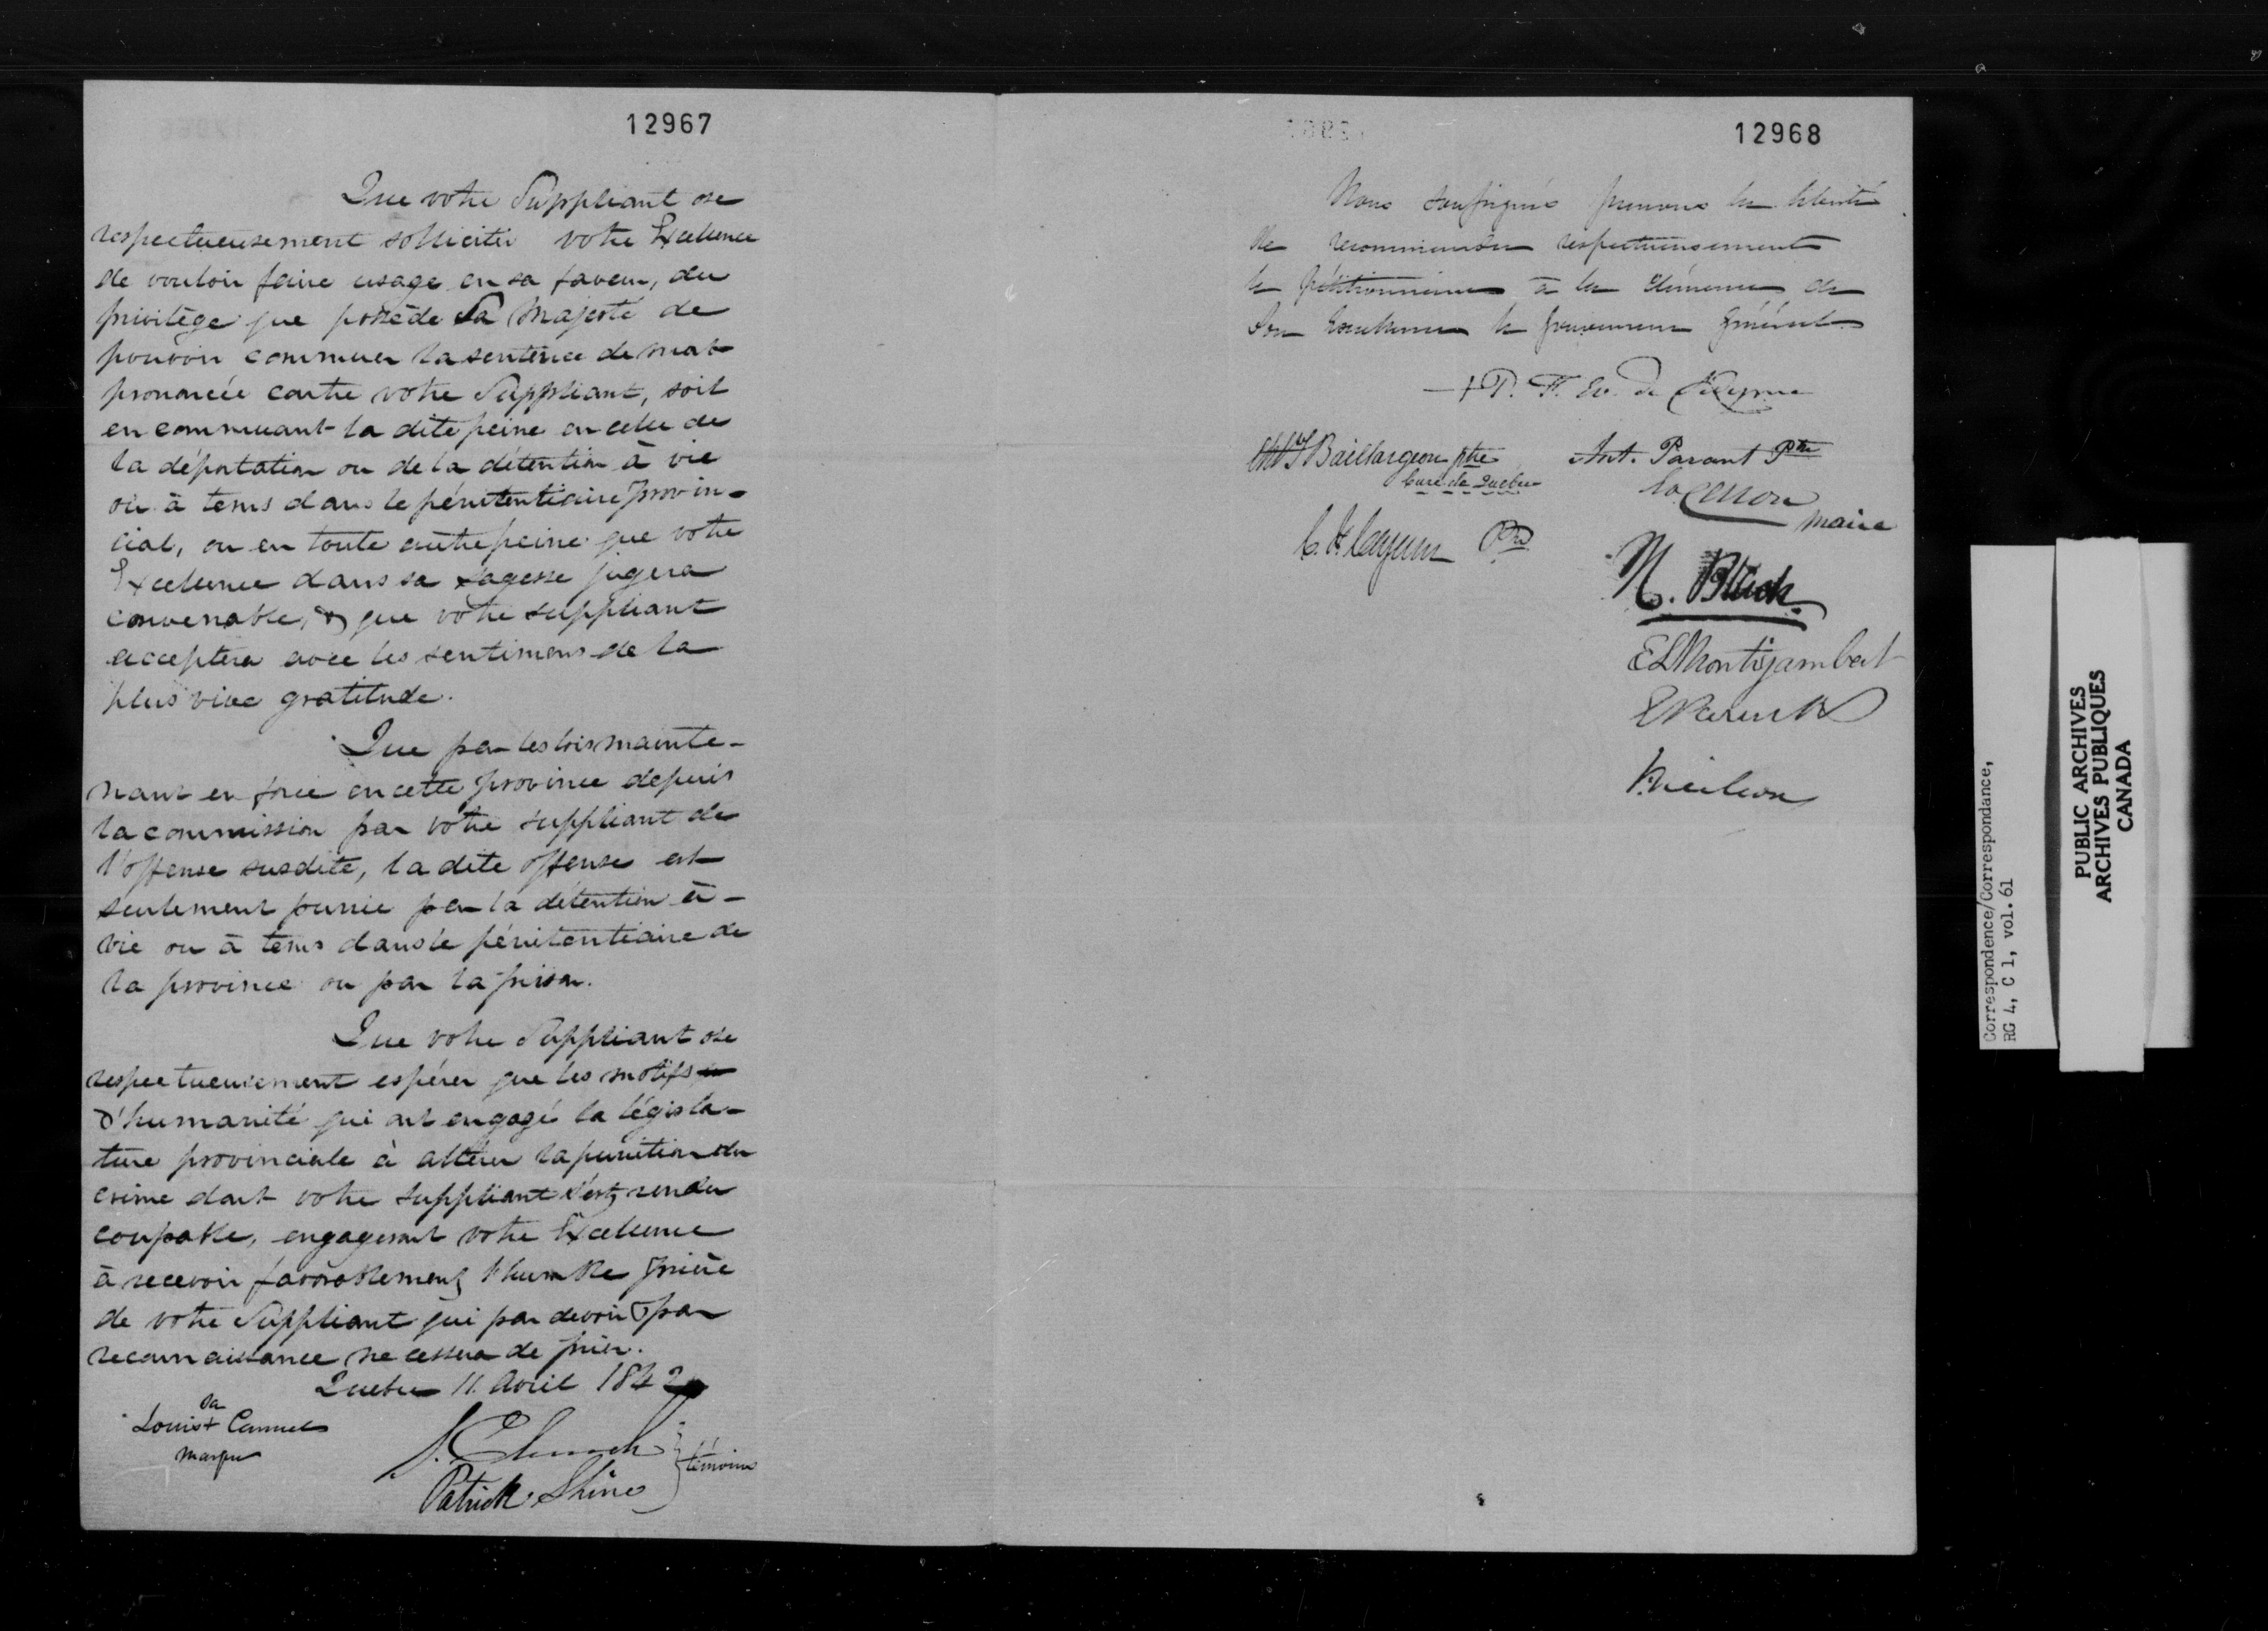 12967
Que votre Suppliant ose
respectueusement solliciter votre Excellence
de vouloir faire usage en sa faveur, du
privilège que possède Sa Majesté de
pouvoir commuer la sentence de mort
prononcée contre votre Suppliant, soit
en commuant la dite peine en celle de
la déportation ou de la détention à vie
ou à tems dans le pénitentiaire provin-
cial, ou en toute autre peine que votre
Excellence dans sa sagesse jugera
convenable, & que votre suppliant
acceptera avec les sentimens de la
plus vive gratitude.
Que par les lois mainte-
nant en force en cette province depuis
la commission par votre suppliant de
l'offense susdite, la dite offense est
seulement punie par la détention à
vie ou à tems dans le pénitentiaire de
la province ou par la prison.
Que votre Suppliant ose
respectueusement espérer que les motifs
d'humanité qui ont engagé la législa-
ture provinciale à altérer la punition du
crime dont votre suppliant s'est rendu
coupable, engageront votre Excellence
à recevoir favorablement l'humble prière
de votre Suppliant qui par devoir & par
reconnaissance ne cessera de prier.
Quebec 11. Avril 1842
sa
Louis + Cannel
marque
Patrick Shine
témoins
12968
Nous soussignés prenons la liberté
de recommander respectueusement
le pétitionnaire à la clémence de
Son Excellence le Gouverneur Général
+ P. F. Ev. de Sidyme
Chs F Baillargeon ptre
Curé de Quebec
Ant. Parant Ptre
Ed. Caron
maire
C. F. Cazeau Ptre
H. Black
E L Montizambert
E Parent
J. Neilson
Correspondence/Correspondance,
RG 4, C 1, vol. 61
PUBLIC ARCHIVES
ARCHIVES PUBLIQUES
CANADA